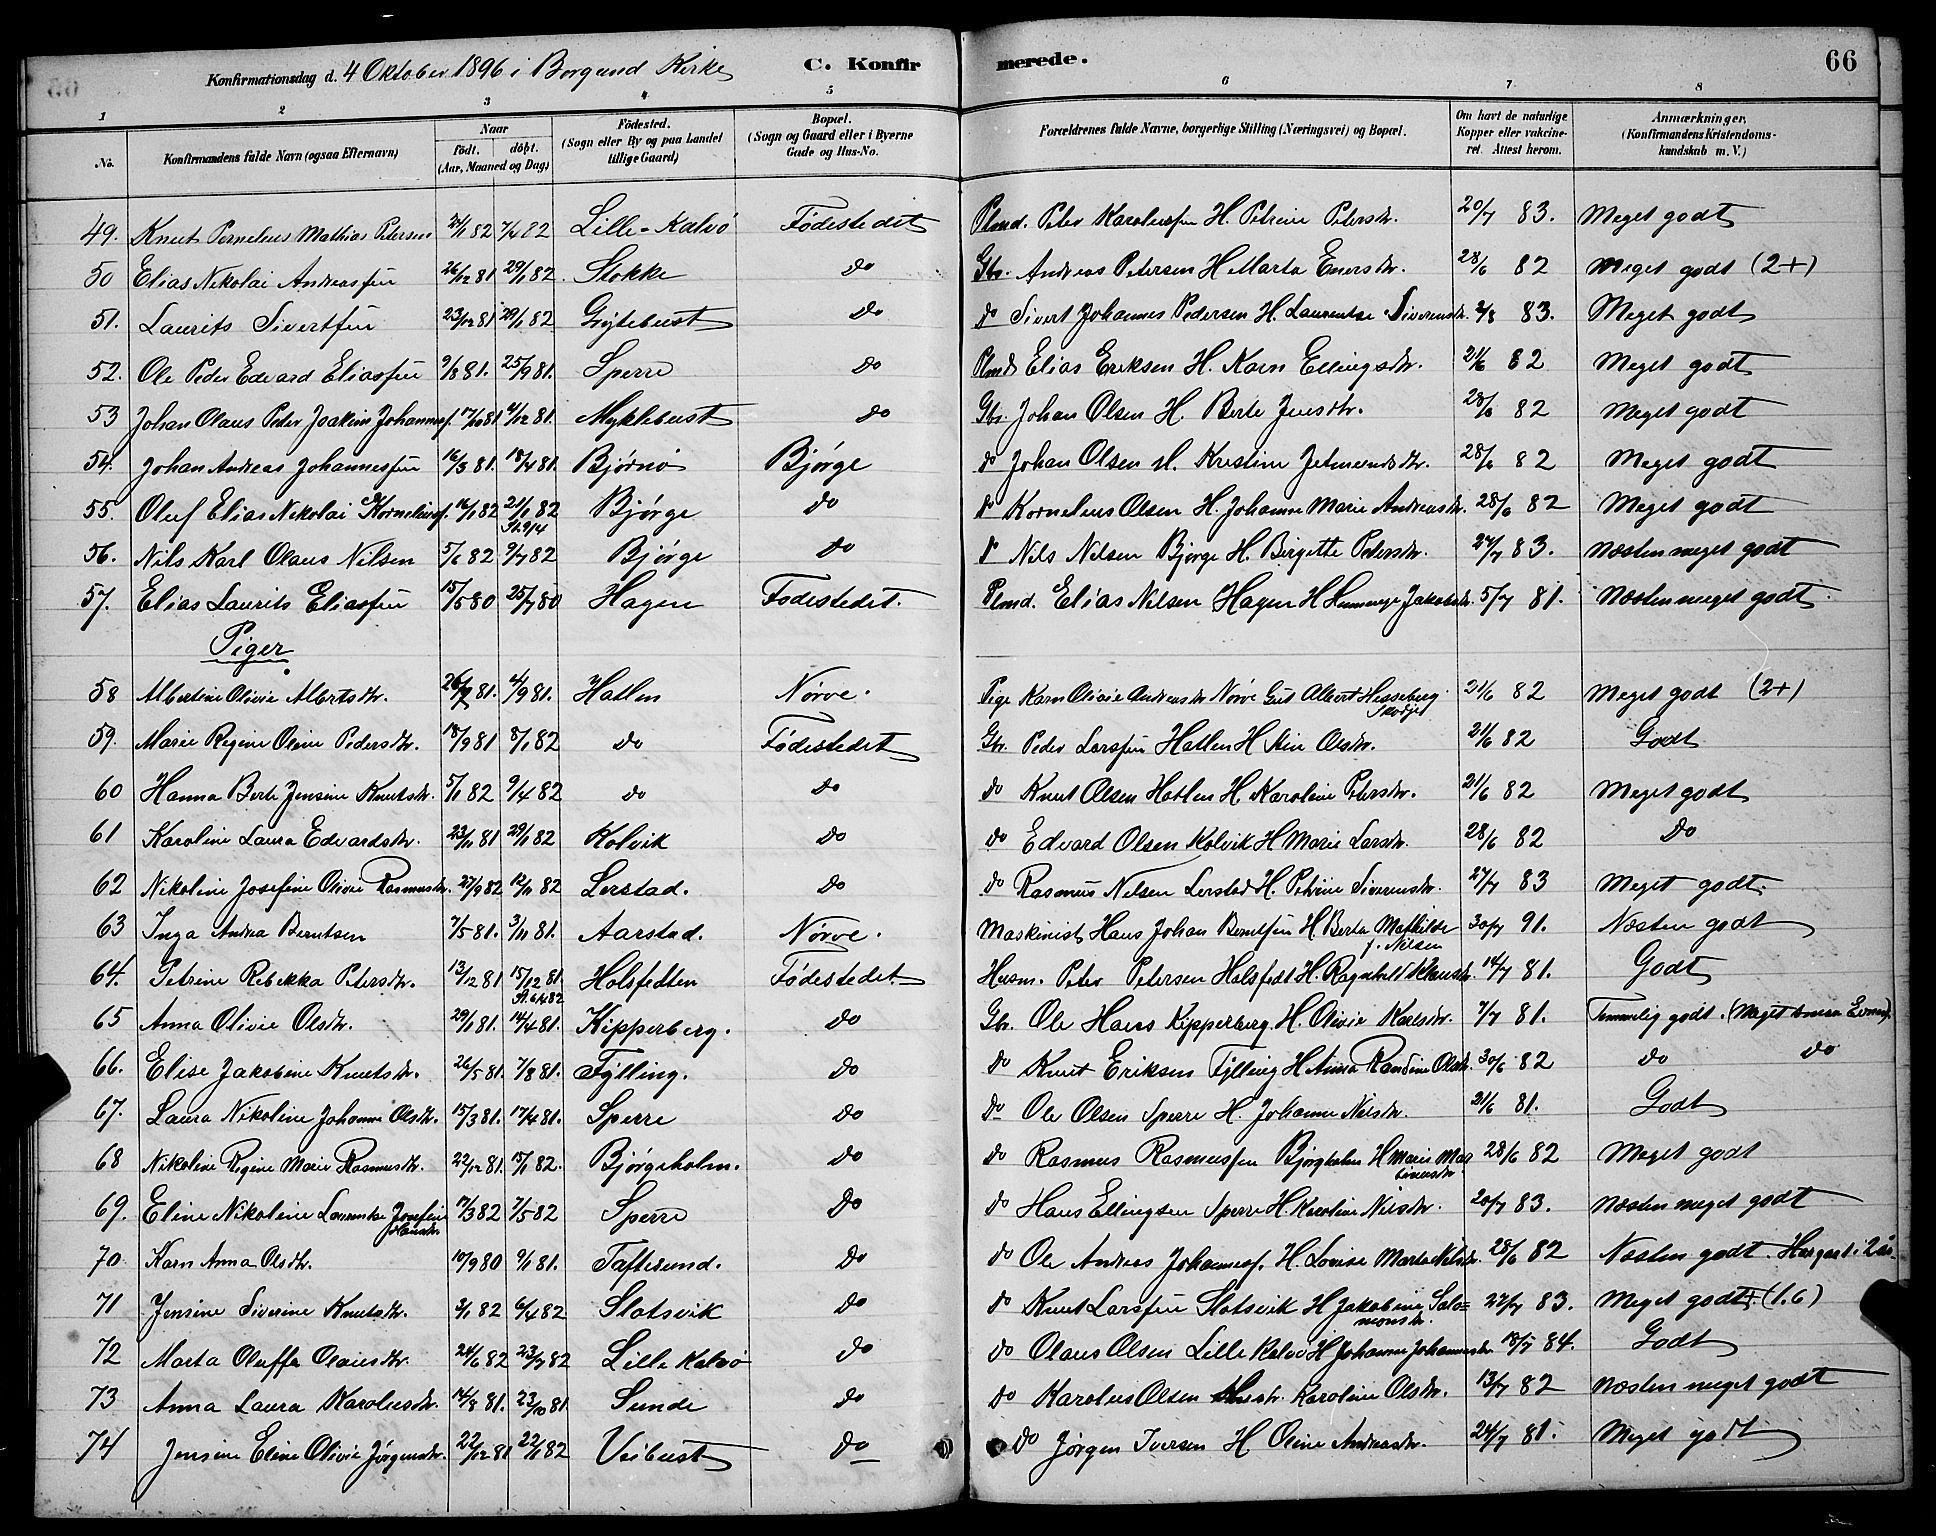 Konfirmationsdag d. 4 Oktober 1896 i Borgund Kirke C. Konfirmerede. 66
1 2 3 4 5 6 7 8
No. Konfirmandens fulde Navn (ogsaa Efternavn) Naar Födt. döbt. (Aar, Maaned og Dag) Födested. (Sogn eller By og paa Landet tillige Gaard) Bopæl. (Sogn og Gaard eller i Byerne Gade og Hus-No. Forældrenes fulde Navne, borgerlige Stilling (Næringsvei) og Bopæl. Om havt de naturlige Kopper eller vakcineret. Attest herom. Anmærkninger, (Konfirmandens Kristendomskundskab m. V.)
49. Knut Mathias Petersen 82 82 Lille-Kalvø Fødestedet Peter H. Petrine Petersdtr. 20/7 83. Meget godt
50 Elias Nikolai Andreassen 26/12 81 29/1 82. Slokke do Gbr. Andreas Petersen H Marta 28/6 82 Meget godt (2+)
51. Laurits Sivertsen 23/12 81 29/1 82 do do Sivert Johannes Pedersen H. Laurentse 83. Meget godt
52. Ole Peder Edvard Eliassen 9/8 81. 25/9 81. Sperre do Elias Eriksen H. Karn Ellingsdtr. 21/6 82 Meget godt
53 Johan Olaus Peter Joakim Johannesf. 17/10 81 4/12 81. Myklebust do Gbr. Johan Olsen H. Berte Jensdtr. 28/6 82 Meget godt
54. Johan Andreas Johannessen 16/3 81. 18/4 81. Bjørnø Bjørge do Johan Olsen H. Kristine Jetmundsdtr. 28/6 82 Meget godt
55. Oluf Elias Nikolai Korneliusf. 16/1 82 21/1 82 Bjørge do do Kornelius Olsen H. Johanne Marie Andreasdtr. 28/6 82 Meget godt
St. 9/4
56. Nils Karl Olaus Nilsen 5/6 82 9/7 82 Bjørge do Nils Nilsen Bjørge H. Birgitte Petersdtr. 27/7 83. Næsten meget godt
57. Elias Laurits Eliassen 15/5 80 25/7 80 Hagen Fødestedet. Plmd. Elias Nilsen Hagen H Jakobsdtr. 5/7 81. Næsten meget godt.
Piger
58 Albertine Olivie Albertsdtr. 26/7 81. 4/9 81. Hatlen Nørve. Pige Karn Olivie Andreasdtr Nørve Albert Hesseberg 21/6 82 Meget godt (2+)
Skodje
59. Marie Regine Oline Pedersdtr. 18/9 81 8/1 82 do Fødestedet Gbr Peder Larssen Hatlen H Stine Olsdtr. 21/6 82 Godt
60 Hanna Berte Jensine Knutsdtr. 5/1 82 9/4 82 do do do Knut Olsen Hatlen H. Karoline Petersdtr. 21/6 82 Meget godt
61 Karoline Laura Edvardsdtr. 23/11 81 29/1 82 Kolvik do do Edvard Olsen Kolvik H Marie Larsdtr. 28/6 82 do
62 Nikoline Josefine Olivie Rasmusdtr. 27/9 82 12/11 82 Lerstad. do do Rasmus Nilsen Lerstad H. Petrine Siverinsdtr. 27/7 83 Meget godt.
63 Inga Andrea Berntsen 7/5 81. 3/11 81. Aarstad. Nørve. Maskinist Hans Johan Berntsen H Berta Mathilde 30/7 91. Næsten godt
f. Nilsen
64. Petrine Rebekka Petersdtr. 13/12 81 15/12 81. Holsfedten Fødestedet. Husm. Peter Petersen Holsfedt H. Ragnhild 14/7 81. Godt
65 Anna Olivie Olsdtr. 29/1 81. 14/4 81. Kipperberg. do Gbr. Ole Hans Kipperberg. H. Olivie Karlsdtr. 7/7 81. Temmelig godt. (Meget smaa Evner).
66. Elise Jakobine Knutsdtr. 26/5 81. 7/8 81. Fylling. do do Knut Eriksen Fylling H Anna Randine Olsdtr. 30/6 82 do do
67. Laura Nikoline Johanne Olsdtr. 15/3 81. 17/4 81. Sperre do do Ole Olsen Sperre H. Johanne Nilsdtr. 21/6 81. Godt
68 Nikoline Regine Marie Rasmusdtr. 22/12 81. 15/1 82. Bjørgeholm. do do Rasmus Rasmussen Bjørgholm H Marie Mar 28/6 82 Meget godt
tinusdtr
69. Eline Nikoline Laurentse Josefine 17/3 82 7/5 82 Sperre do do Hans Ellingsen Sperre H. Karoline Nilsdtr. 20/7 83. Næsten meget godt
Hansdtr.
70. Karn Anna Olsdtr. 10/9 80 9/1 81. Taftesund. do do Ole Andreas Johannesf. H. Lovise Marta Nilsdtr. 28/6 82 Næsten godt. Har gaat i 2 aar
71 Jensine Siverine Knutsdtr. 3/1 82 6/4 82 Slotsvik do do Knut Larssen Slotsvik H Jakobine Salo= 27/7 83. Meget godt+(1.6)
monsdtr.
72 Marta Oluffa Olausdtr. 24/6 82 23/7 82 Lille Kalvø do do Olaus Olsen Lille Kalvø H Johanne Johannesdtr. 18/7 84. Godt
73 Anna Laura Karolusdtr. 14/8 81. 23/10 81. Sunde do do Karolus Olsen Hustr. Karoline Olsdtr. 13/7 82 Næsten meget godt
74 Jensine Eline Olivie Jørgensdtr. 22/12 81 22/1 82 Veibust do do Jørgen Iversen H Oline Andreasdtr. 24/7 81. Meget godt